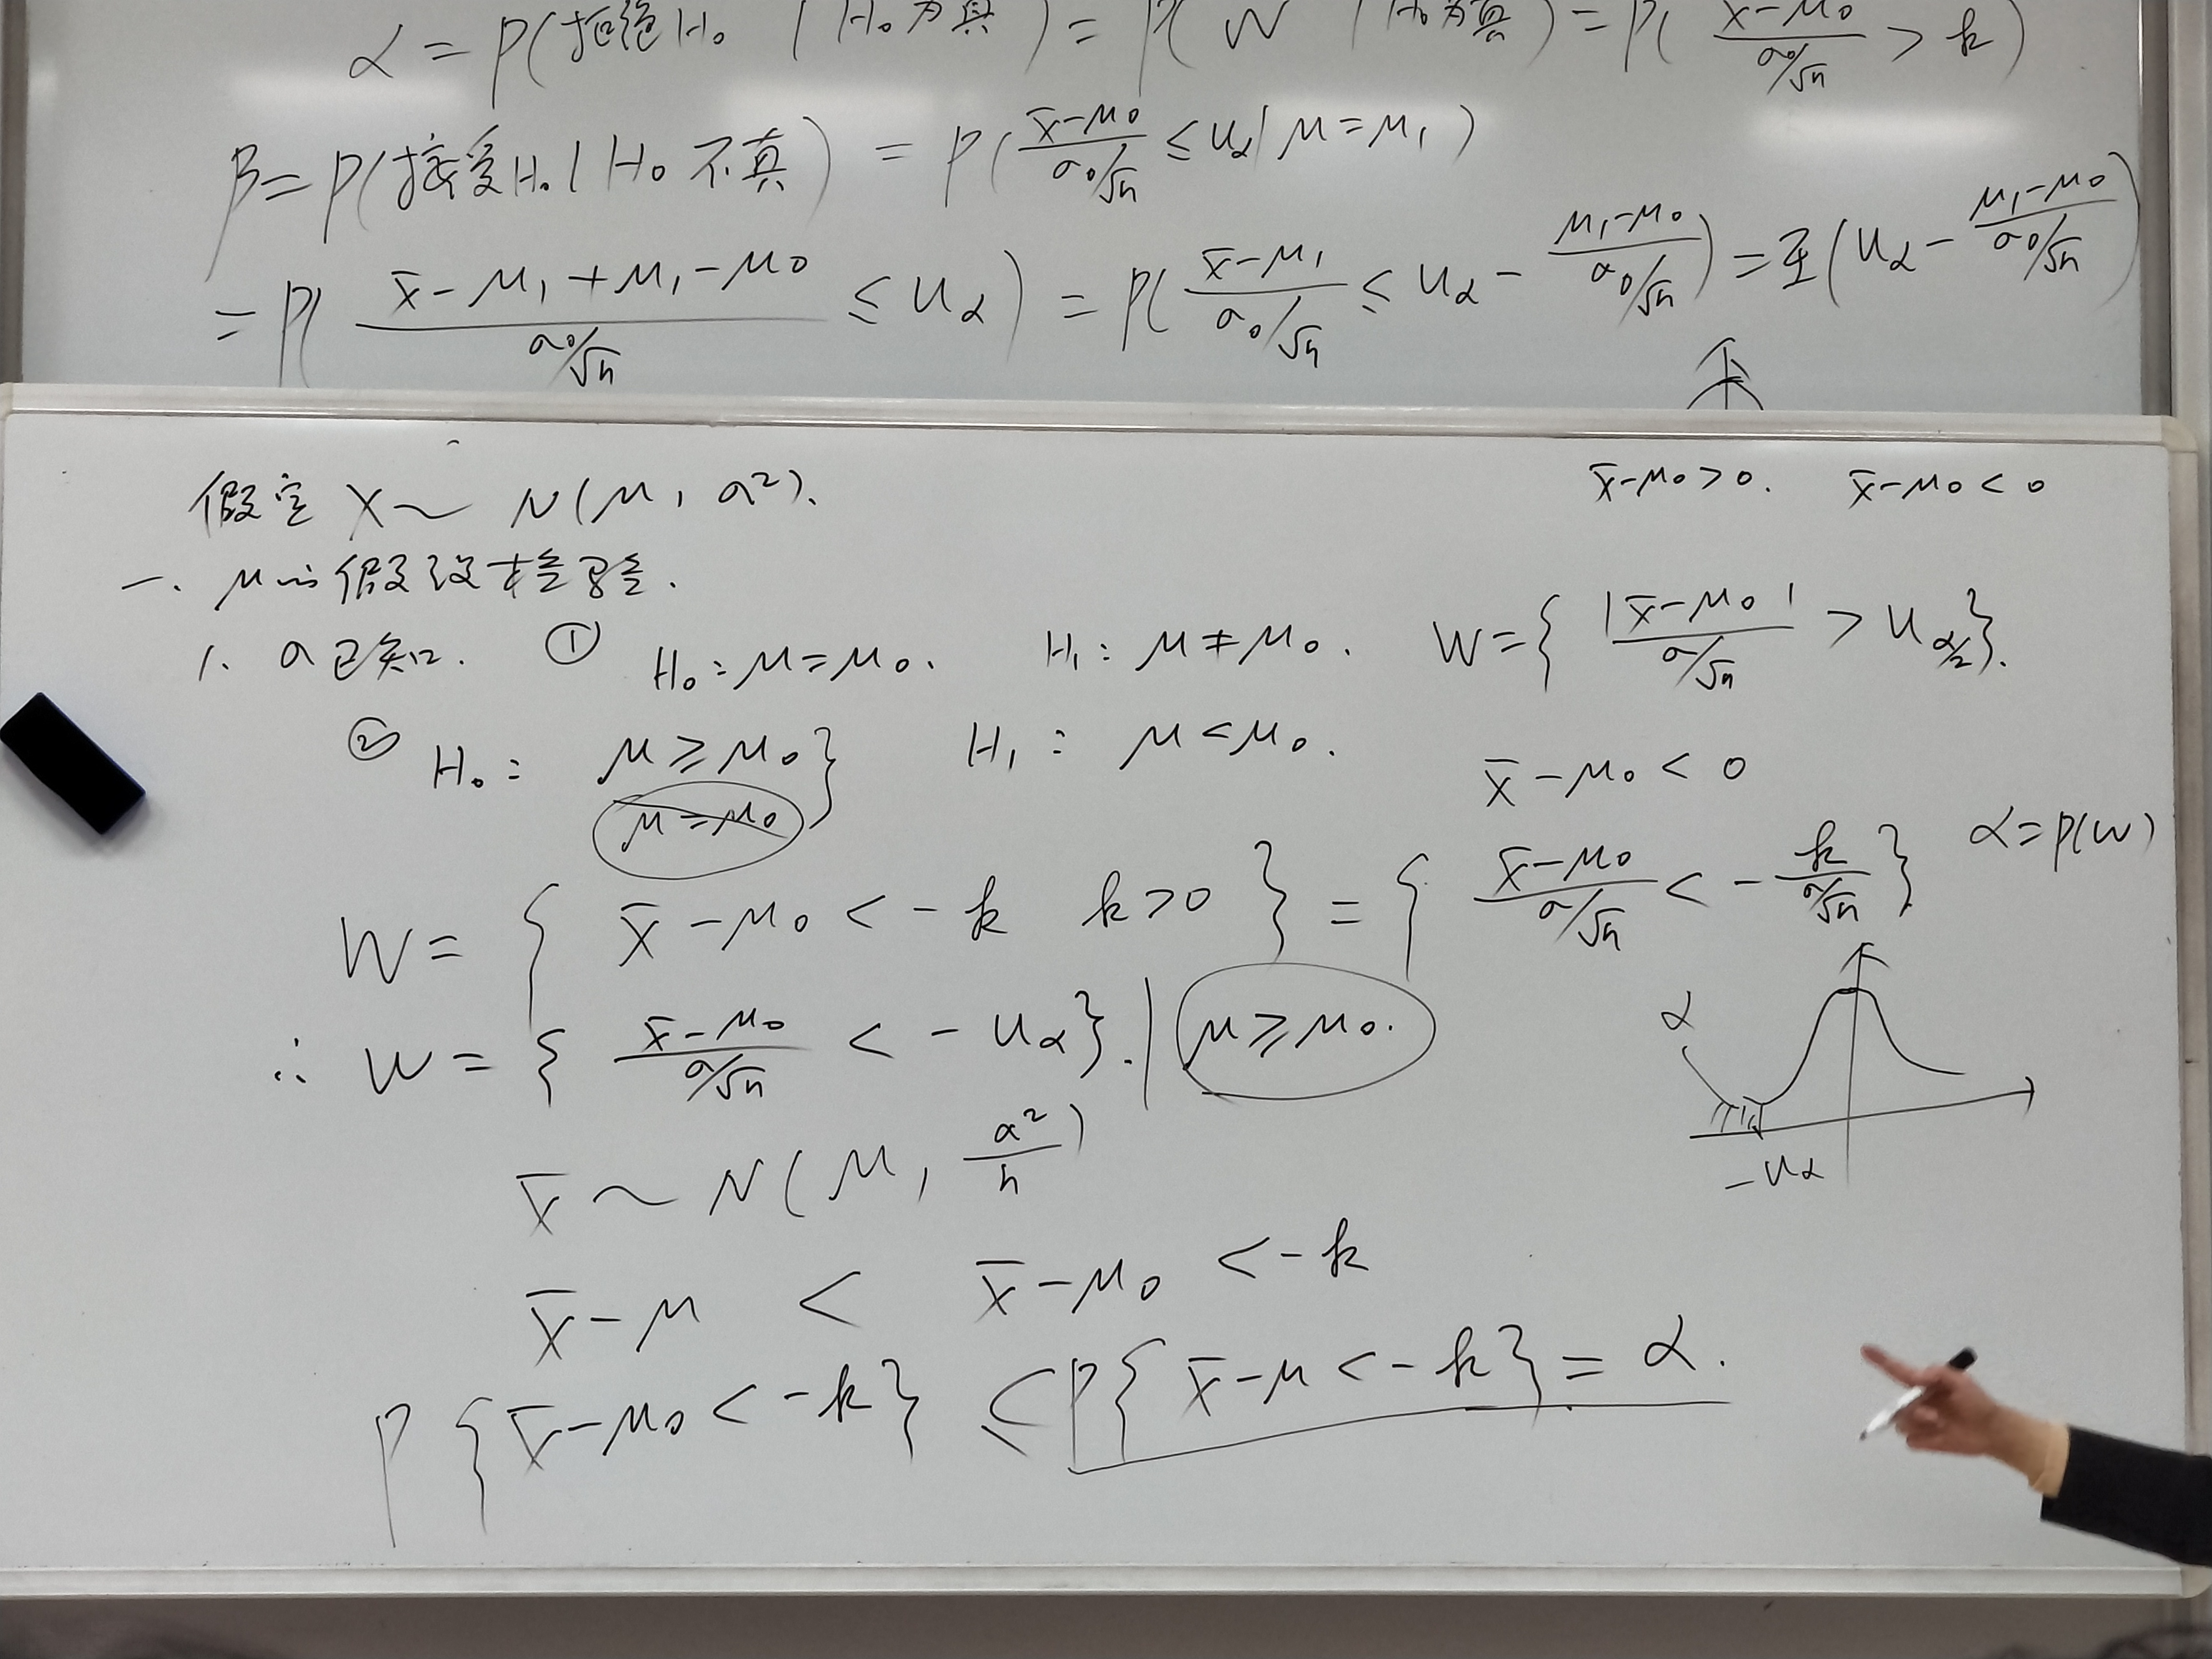 α = P(拒绝H₀ | H₀为真) = P(W | H₀为真) = P((x̄-μ₀)/(σ₀/√n) > k)
β = P(接受H₀ | H₀不真) = P((x̄-μ₀)/(σ₀/√n) ≤ u_α | μ=μ₁)
= P((x̄-μ₁+μ₁-μ₀)/(σ₀/√n) ≤ u_α) = P((x̄-μ₁)/(σ₀/√n) ≤ u_α - (μ₁-μ₀)/(σ₀/√n)) = Φ(u_α - (μ₁-μ₀)/(σ₀/√n))
x̄-μ₀>0. x̄-μ₀<0
假定 X~N(μ, σ²).
一. μ的假设检验.
1. σ已知. ① H₀: μ=μ₀. H₁: μ≠μ₀. W={|x̄-μ₀|/(σ/√n) > u_{α/2}}.
② H₀: μ≥μ₀} H₁: μ<μ₀. x̄-μ₀<0
μ=μ₀
W={x̄-μ₀<-k k>0}={(x̄-μ₀)/(σ/√n) < -k/(σ/√n)} α=P(W)
∴ W={(x̄-μ₀)/(σ/√n) < -u_α}. | μ≥μ₀.
α
-u_α
x̄~N(μ, σ²/n)
x̄-μ < x̄-μ₀ < -k
P{x̄-μ₀<-k} ≤ P{x̄-μ<-k}=α.